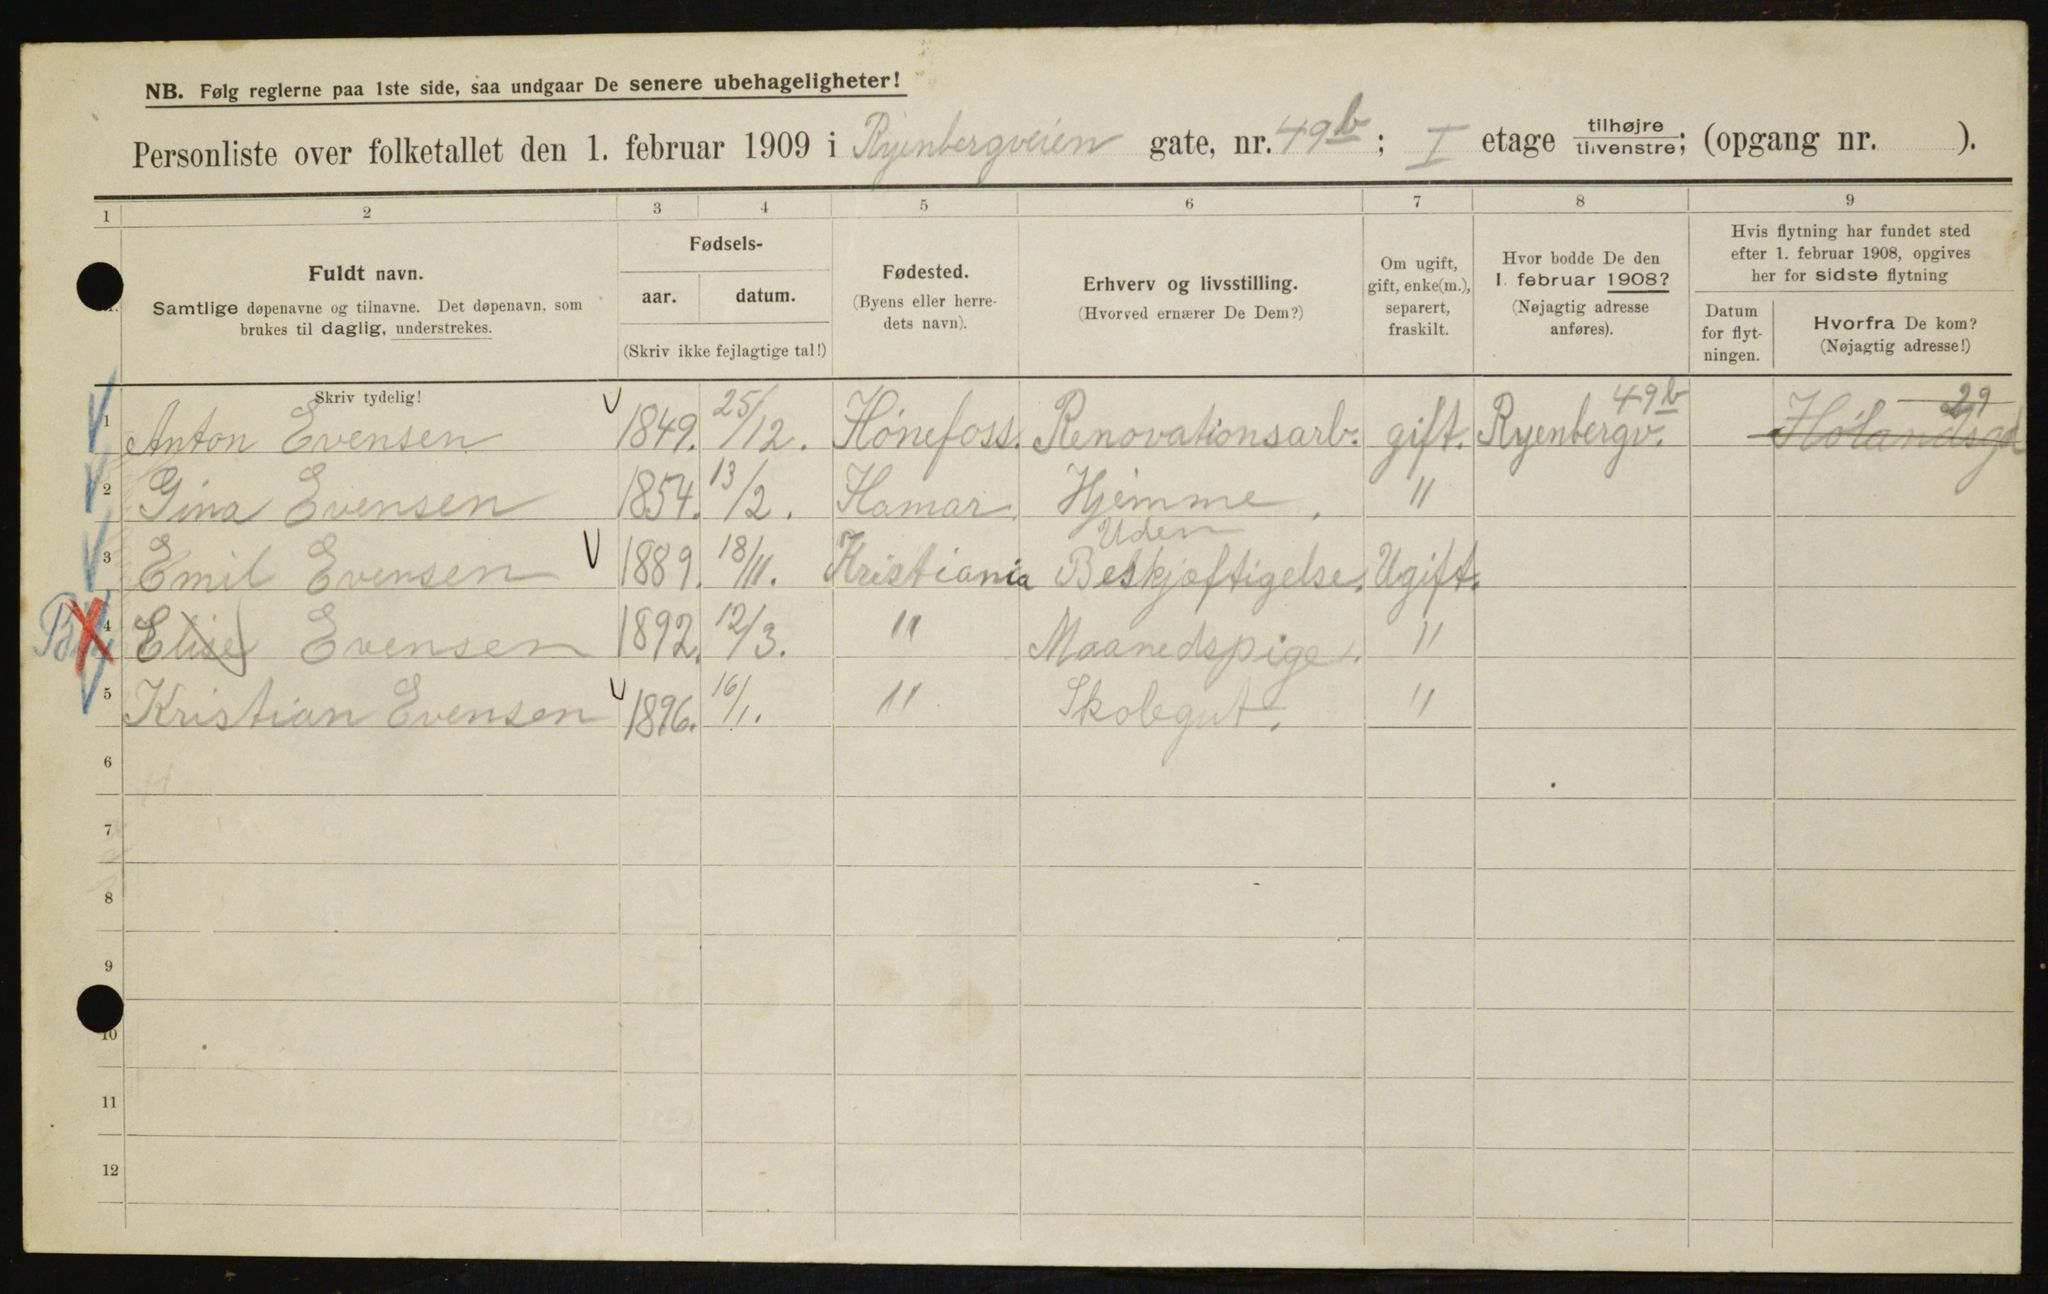 NB. Følg reglerne paa 1ste side, saa undgaar De senere ubehageligheter!
Personliste over folketallet den 1. februar 1909 i Ryenbergveien gate, nr. 49b; I etage tilhøjre tilvenstre; (opgang nr. ).
1 2 3 4 5 6 7 8 9
Fuldt navn.
Samtlige døpenavne og tilnavne. Det døpenavn, som
brukes til daglig, understrekes.
Skriv tydelig!
Fødsels-
aar. datum.
(Skriv ikke fejlagtige tal!)
Fødested.
(Byens eller herre-
dets navn).
Erhverv og livsstilling.
(Hvorved ernærer De Dem?)
Om ugift,
gift, enke(m.),
separert,
fraskilt.
Hvor bodde De den
1. februar 1908?
(Nøjagtig adresse
anføres).
Hvis flytning har fundet sted
efter 1. februar 1908, opgives
her for sidste flytning
Datum
for flyt-
ningen.
Hvorfra De kom?
(Nøjagtig adresse!)
1 Anton Evensen 1849. 25/12. Hönefoss. Renovationsarb. gift. Ryenbergv. 49b Hölandsgd 29
2 Gina Evensen 1854. 13/2. Hamar. Hjemme. "
3 Emil Evensen 1889. 18/11. Kristiania Uden Beskjæftigelse. Ugift.
4 Elise Evensen 1892. 12/3. " Maanedspige. "
5 Kristian Evensen 1896. 16/1. " Skolegut. "
6
7
8
9
10
11
12